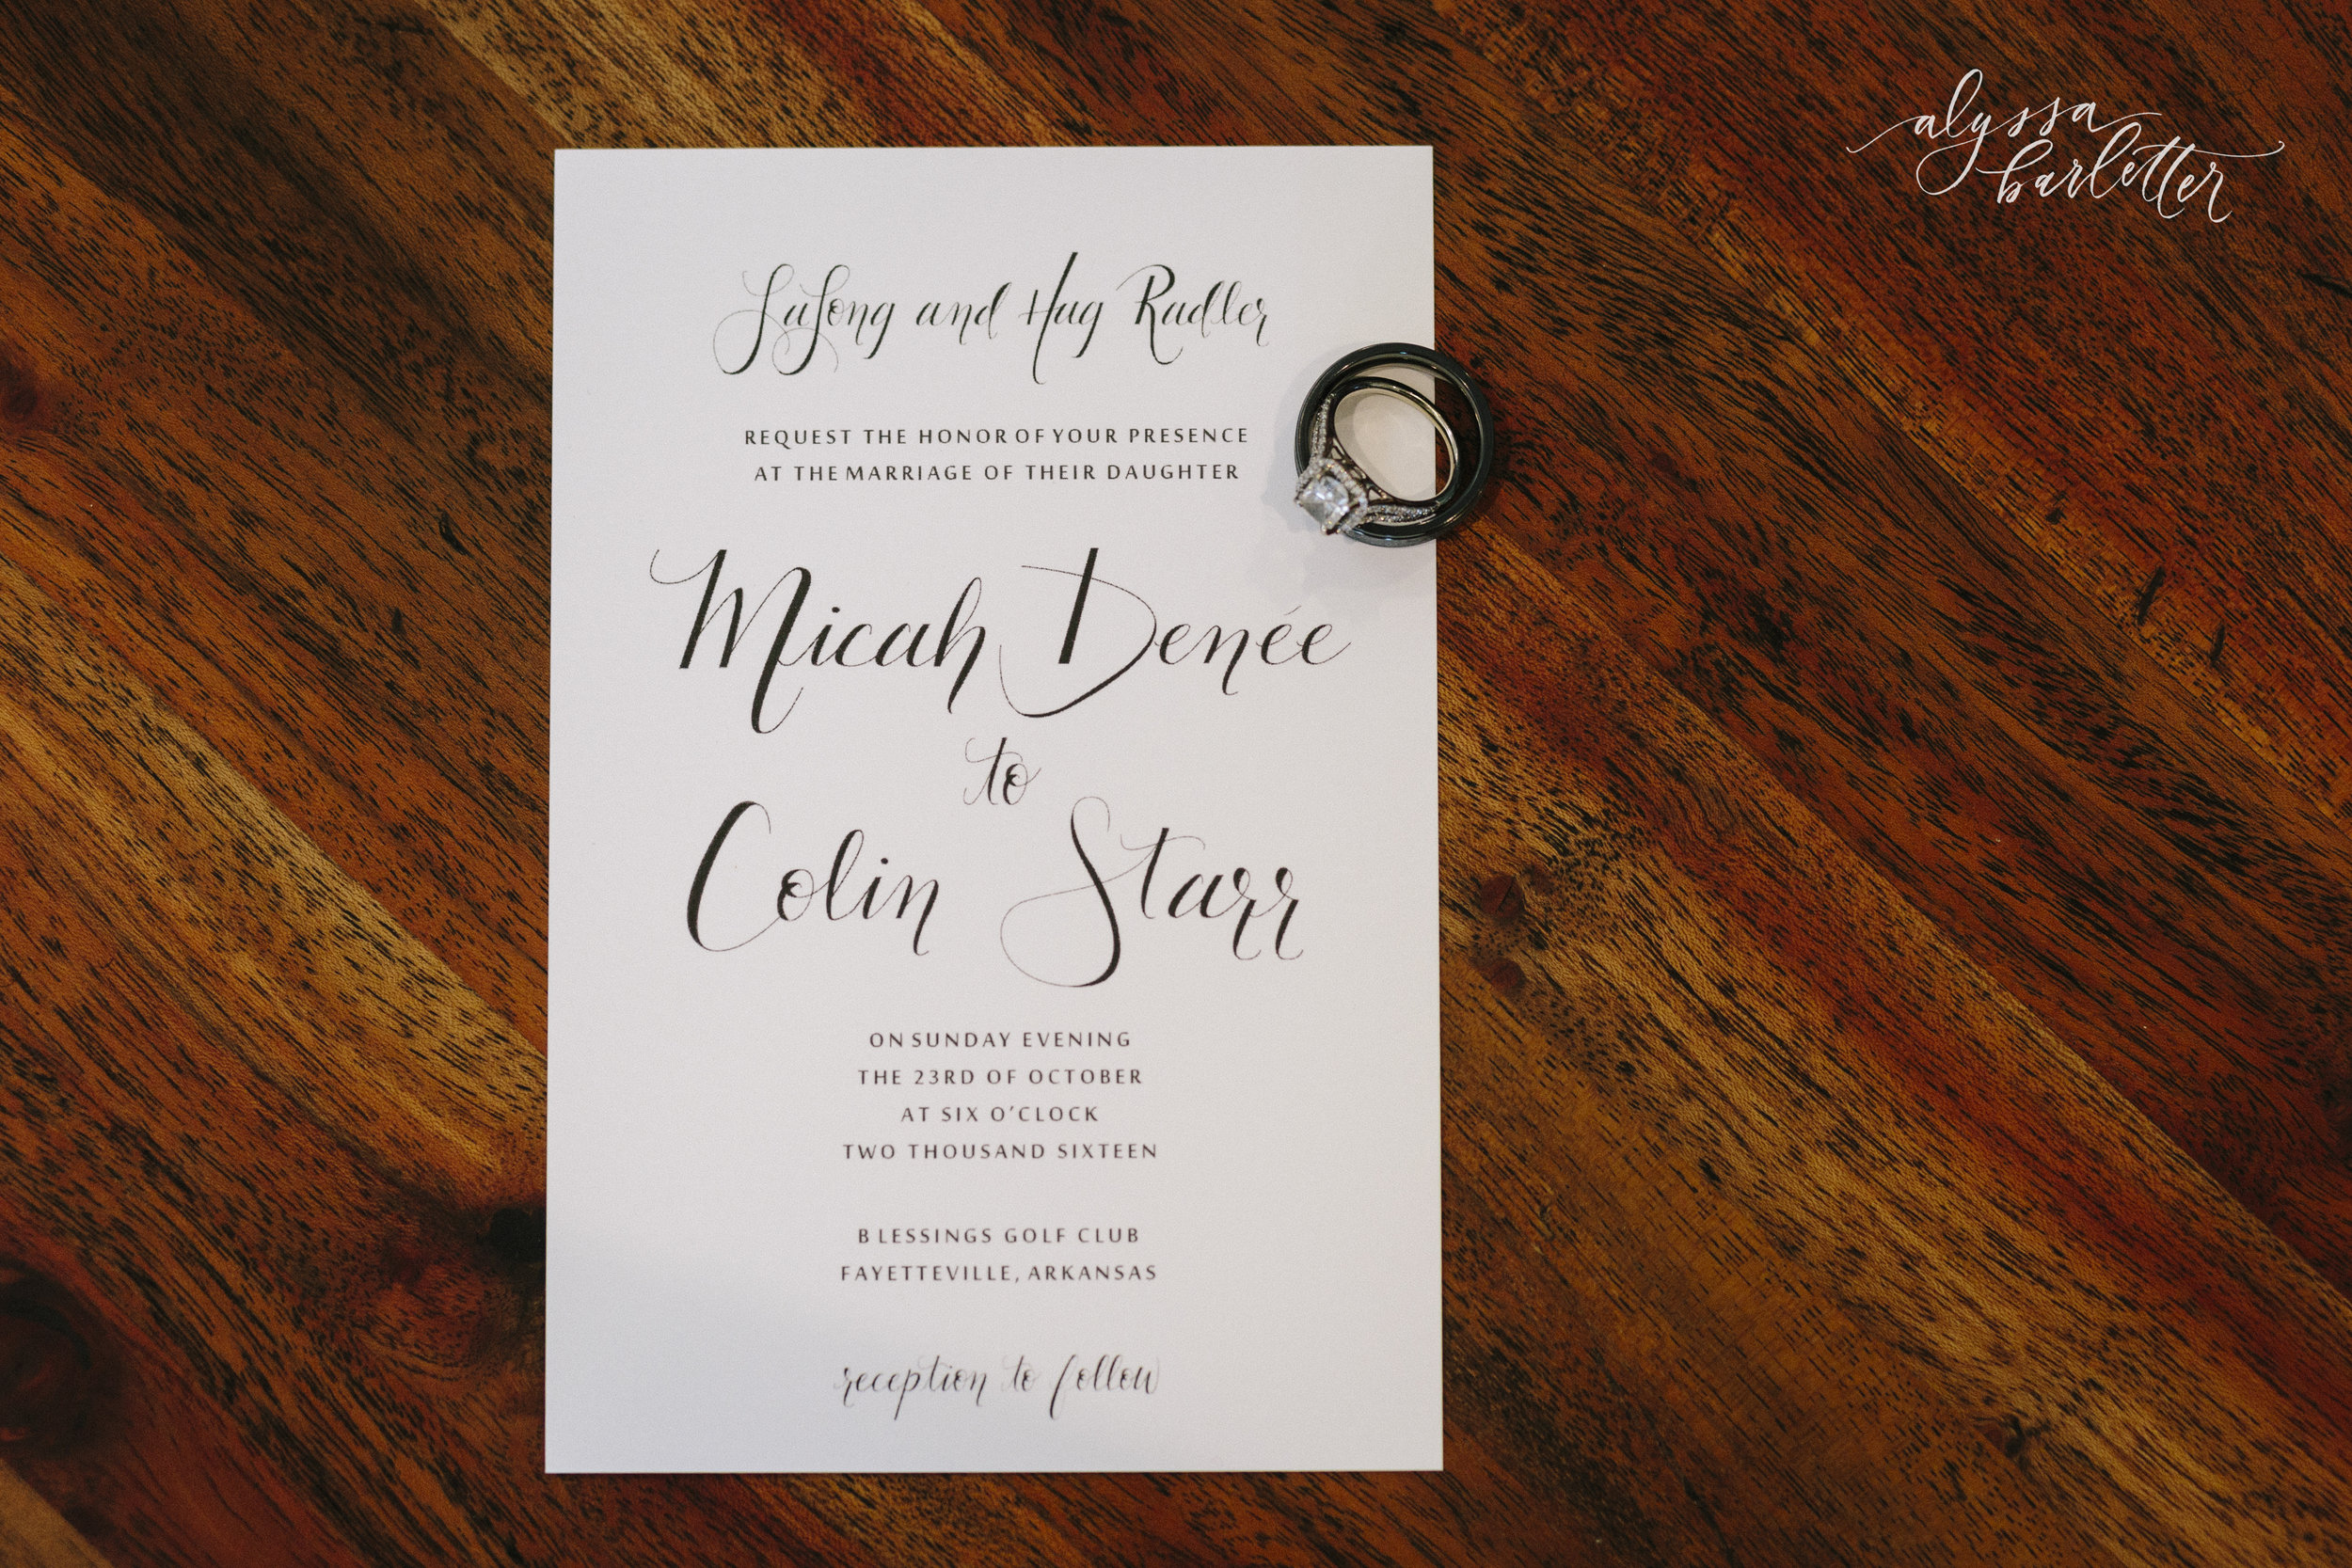 alyssa
barletter
LaJong and Hug Radler
REQUEST THE HONOR OF YOUR PRESENCE
AT THE MARRIAGE OF THEIR DAUGHTER
Micah Denée
to
Colin Starr
ON SUNDAY EVENING
THE 23RD OF OCTOBER
AT SIX O'CLOCK
TWO THOUSAND SIXTEEN
BLESSINGS GOLF CLUB
FAYETTEVILLE, ARKANSAS
reception to follow